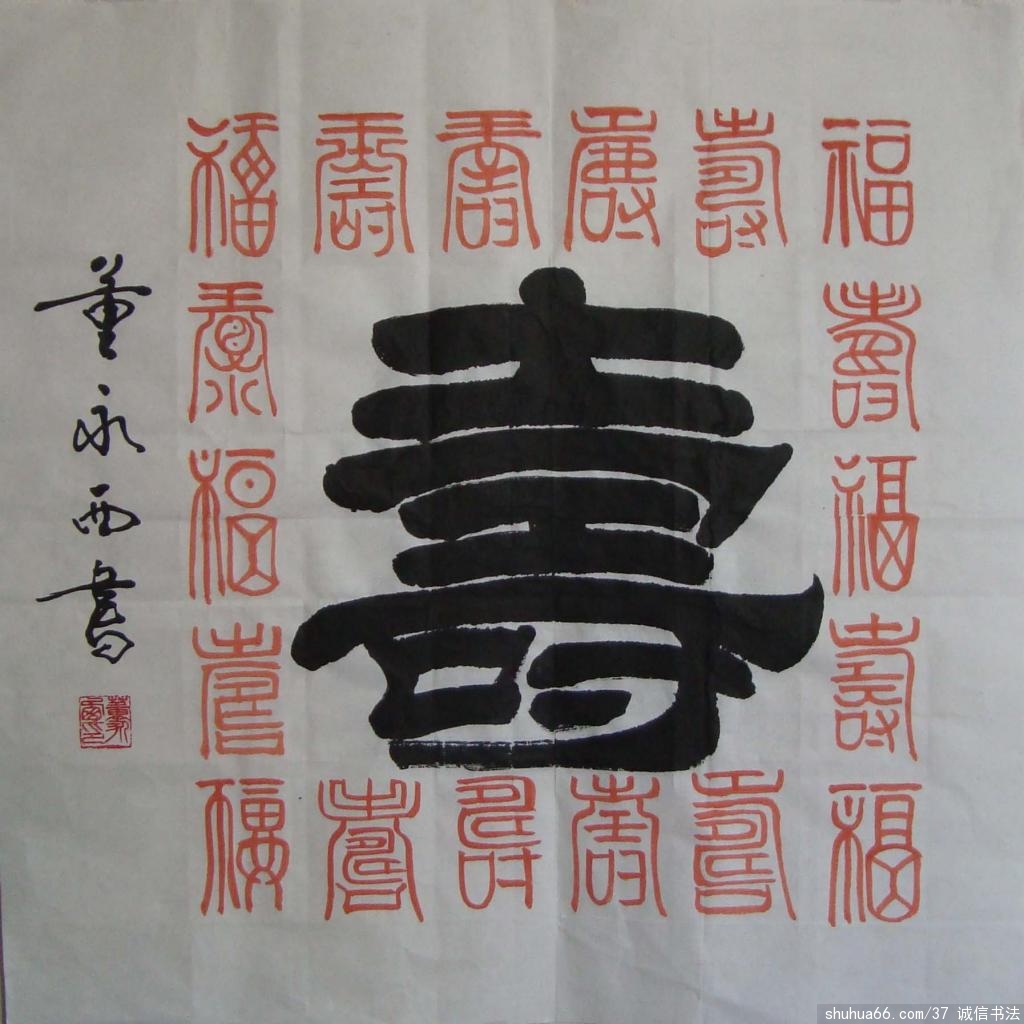 福壽壽壽壽福
壽福壽
福壽壽壽壽福
壽福壽
壽
董永西書
shuhua66.com/37 诚信书法